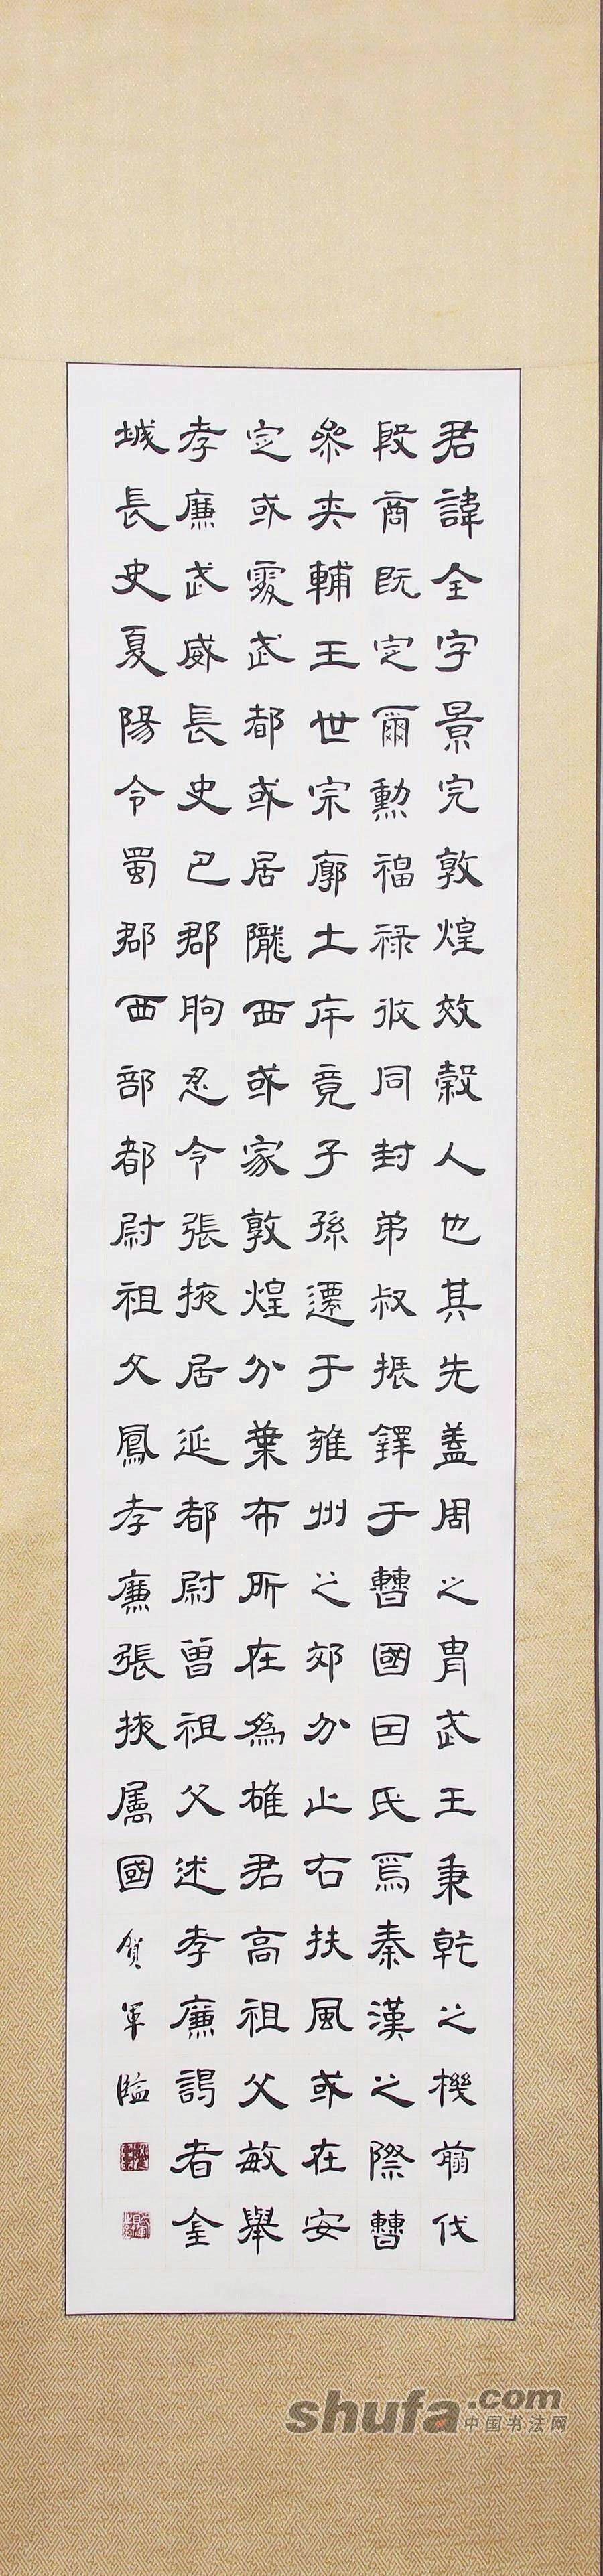 君諱全字景完敦煌效穀人也其先蓋周之胄武王秉乾之機翦伐
殷商既定爾勲福祿攸同封弟叔振鐸于曹國因氏焉秦漢之際曹
參夾輔王世宗廓土斥竟子孫遷于雍州之郊分止右扶風或在安
定或處武都或居隴西或家敦煌分葉布所在為雄君高祖父敏舉
孝廉武威長史巴郡朐忍令張掖居延都尉曾祖父述孝廉謁者金
城長史夏陽令蜀郡西部都尉祖父鳳孝廉張掖屬國
賀軍臨
shufa.com
中国书法网